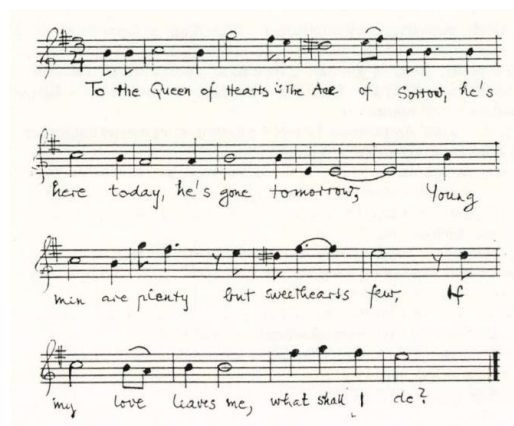 3
4
To the Queen of Hearts is the Ace of Sorrow, he's
here today, he's gone tomorrow, Young
min are plenty but sweethearts few, If
my love leaves me, what shall I do?